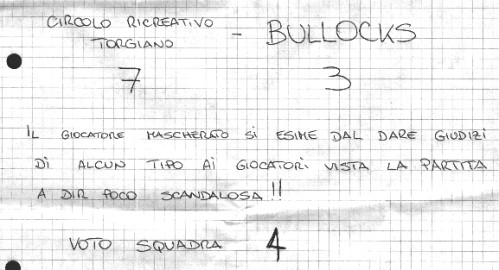 CIRCOLO RICREATIVO TORGIANO - BULLOCKS
7 3
IL GIOCATORE MASCHERATO SI ESIME DAL DARE GIUDIZI
DI ALCUN TIPO AI GIOCATORI VISTA LA PARTITA
A DIR POCO SCANDALOSA!!
VOTO SQUADRA 4